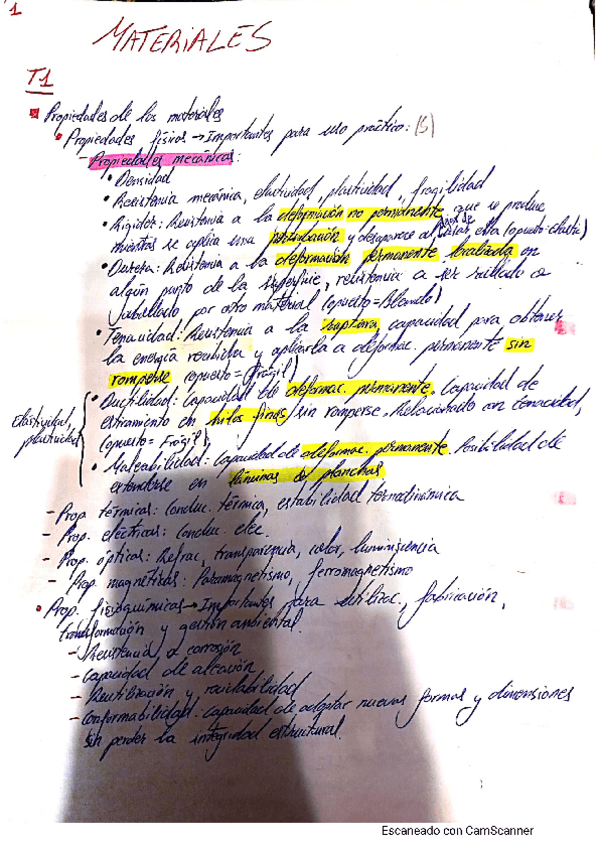 1
MATERIALES
T1
Propiedades de los materiales
• Propiedades físicas → Importantes para uso práctico: (5)
- Propiedades mecánicas:
• Densidad
• Resistencia mecánica, elasticidad, plasticidad, fragilidad
• Rigidez: Resistencia a la deformación no permanente que se produce
mientras se aplica una perturbación y desaparece al cesar esta (opuesto=elástic)
• Dureza: Resistencia a la deformación permanente localizada en
algún punto de la superficie, resistencia a ser rallado o
por otro material (opuesto=Blando)
• Tenacidad: Resistencia a la ruptura, capacidad para obtener
la energía recibida y aplicarla a deformac. permanente sin
romperse (opuesto=Frágil)
• Ductilidad: Capacidad de deformac. permanente. Capacidad de
estiramiento en hilos finos sin romperse. Relacionado con tenacidad,
(opuesto=Frágil)
Elasticidad,
plasticidad
• Maleabilidad: Capacidad de deformac. permanente. Posibilidad de
extenderse en láminas o planchas
- Prop. térmicas: Conduc. térmica, estabilidad termodinámica
- Prop. eléctricas: Conduc. elec.
- Prop. ópticas: Refrac, transparencia, color, luminiscencia
- Prop. magnéticas: Paramagnetismo, ferromagnetismo
• Prop. fisicoquímicas → Importantes para utilizac., fabricación,
transformación y gestión ambiental.
- Resistencia a corrosión
- Capacidad de aleación
- Reutilización y reciclabilidad
- Conformabilidad: capacidad de adoptar nuevas formas y dimensiones
sin perder la integridad estructural.
Escaneado con CamScanner